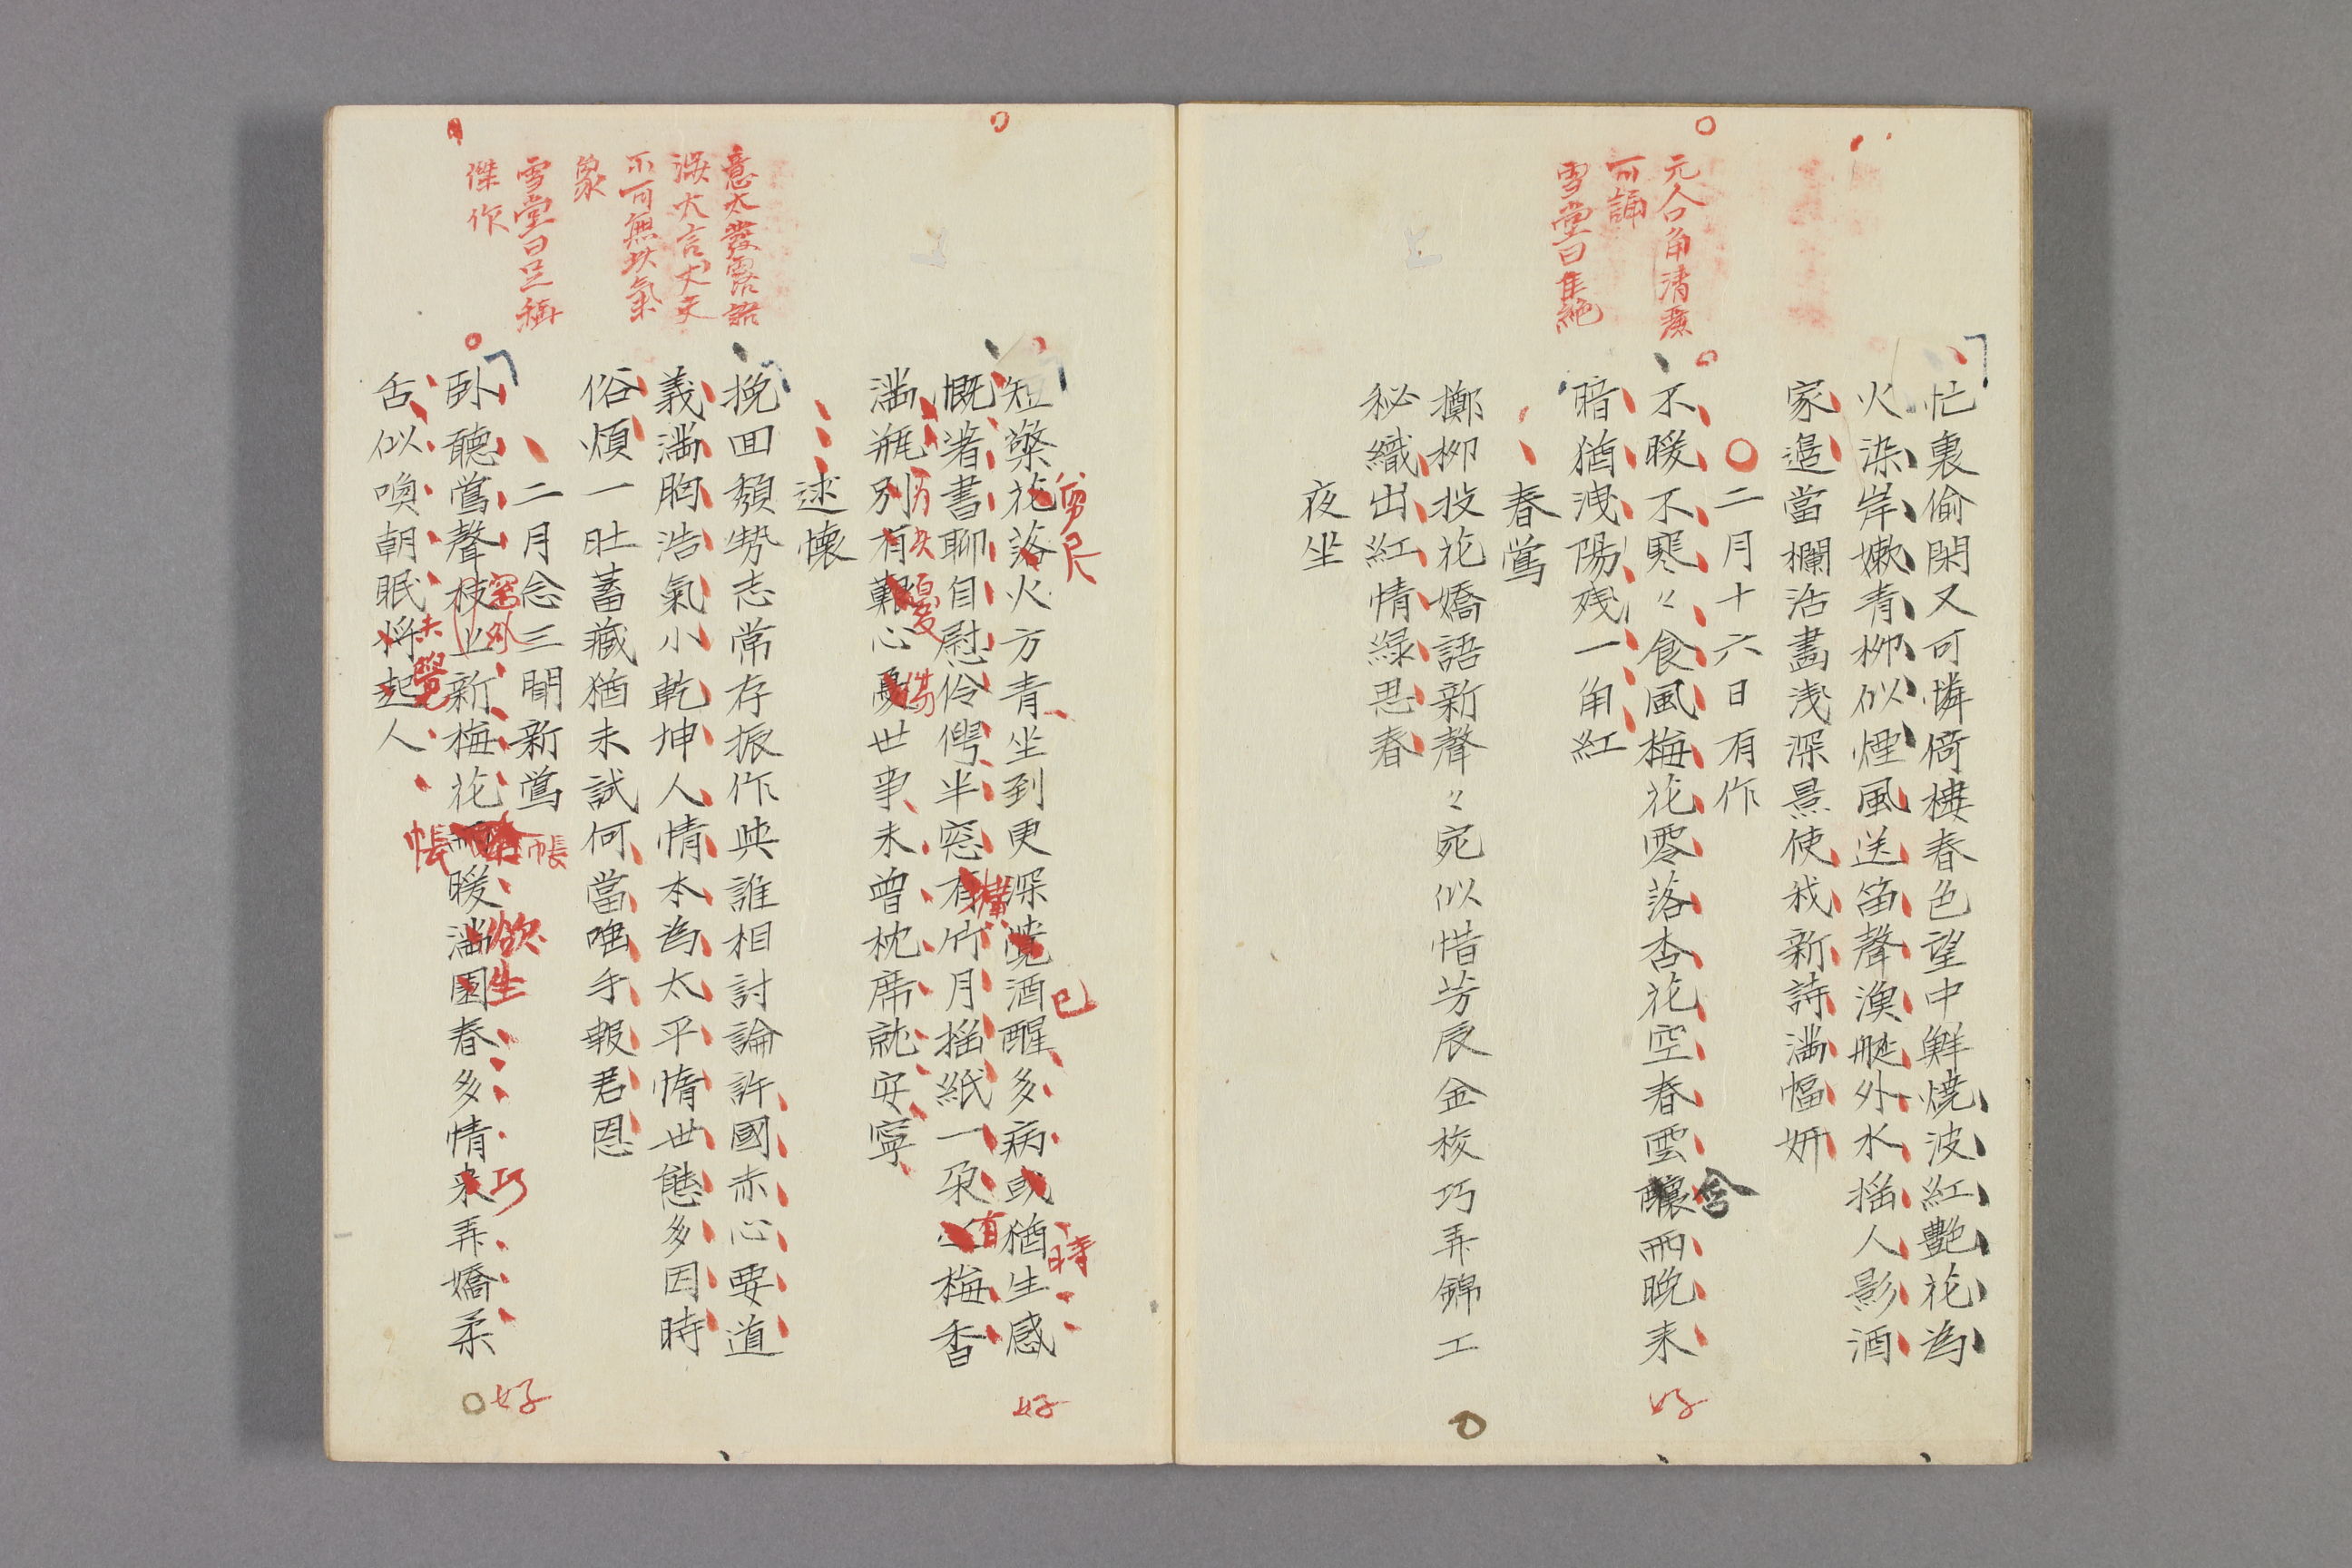 忙裏偷閑又可憐倚樓春色望中鮮燒波紅艷花為
火染岸嫩青柳似煙風送笛聲漁艇外水搖人影酒
家邉當欄沽畵淺深景使我新詩滿幅妍
元人口角清麗
可誦
雪堂曰佳絶
二月十六日有作
不暖不寒々食風梅花零落杏花空春雲釀雨晚来
含
暗猶洩陽殘一角紅
好
春鶯
擲柳投花嬌語新聲々宛似惜芳辰金梭巧弄錦工
秘織出紅情綠思春
夜坐
短檠花落火方青坐到更深覺酒醒多病或猶生感
剪尺
已
時
慨著書聊自慰伶俜半窓有竹月搖紙一朶梅香
橫
有
滿瓶別有艱心憂世事未曾枕席就安寧
憂
傷
好
意太發露語
涉大言丈夫
不可無此氣
象
雪堂曰足稱
傑作
述懷
挽回頹勢志常存振作與誰相討論許國赤心要道
義滿胸浩氣小乾坤人情本為太平惰世態多因時
俗煩一肚蓄藏猶未試何當唾手報君恩
二月念三聞新鶯
卧聽鶯聲枝上新梅花雨暖滿園春多情来弄嬌柔
窓外
帳
欲生
巧
舌似喚朝眠將起人
未覺
帳
好